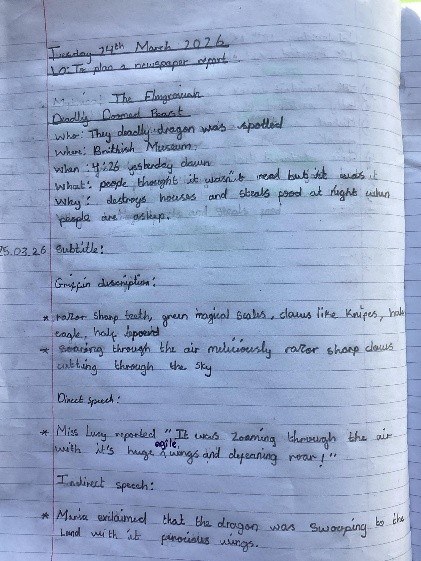 Tuesday 24th March 2026
LO: To plan a newspaper report.
The
Deadly Doomed Beast
Who: They deadly dragon was spotted
Where: Brithish Museum
When: 4:26 yesterday dawn
What: people thought it wasn't real but it was it
Why: destroys houses and steals food at night when
people are asleep.
25.03.26 Subtitle:
Griffin discription:
* razor sharp teeth, green magical scales, claws like knifes, half
eagle, half
* soaring through the air meliciously razor sharp claws
cutting through the sky
Direct speech:
* Miss Lucy reported "It was zooming through the air
with it's huge, agile, wings and defeaning roar!"
Indirect speech:
* Maria exclaimed that the dragon was swooping to the
Land with it firocious wings.